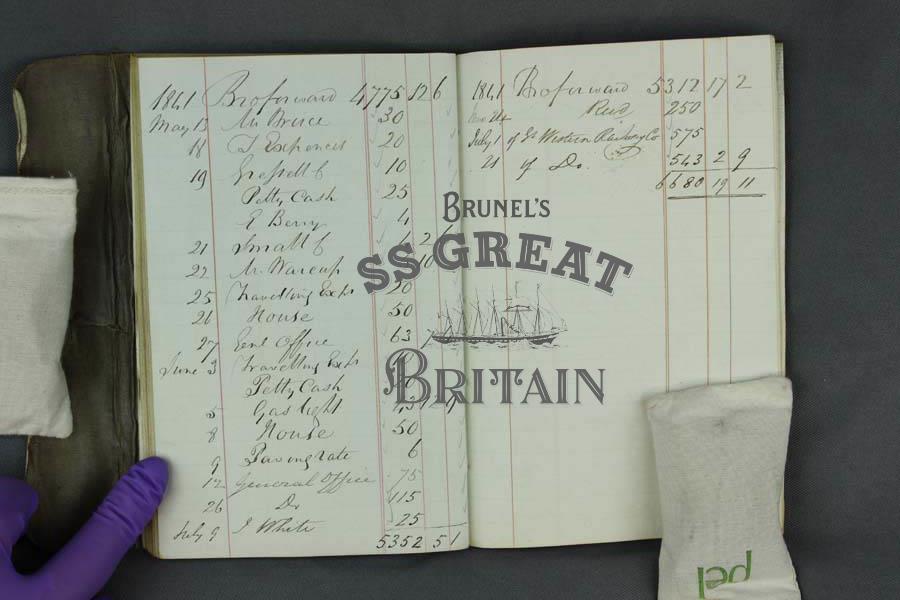 1841 Bro forward 4775 12 6
May 13 Mr Bruce 30
18 T Expences 20
19 Gressell & 10
Petty Cash 25
E Berry 4
21 Small & 2
22 Mr Warcup 10
25 Travelling Exps 20
26 House 50
27 Genl Office 63
June 3 Travelling Exps
Petty Cash
5 Gas light
8 House 50
9 Paving rate 6
12 General Office 75
26 Do 115
July 9 J White 25
5352 5 1
1841 Bro forward 5312 17 2
Recd 250
July 1 of Gt Western Railway Co 575
21 of Do. 543 2 9
6680 19 11
BRUNEL'S
SS GREAT
BRITAIN
pel